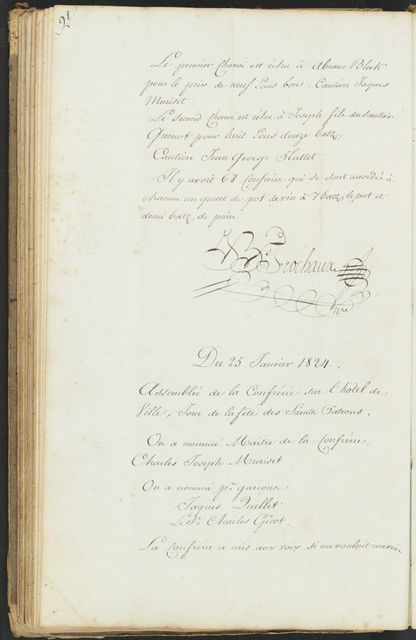 21
Le premier Chanvi est échu à Abram Bloch
pour le prix de neuf Ecus bons. Caution Jaques
Muriset.
Le second Chanvi est échu à Joseph fils du Sautier
Quenot pour huit Ecus douze batz
Caution Jean George Hallet.
Il y avoit 68 Confrères qui se sont accordés à
chacun un quart de pot de vin à 7 batz le pot et
demi batz de pain.
Frochaux
Du 25 Janvier 1824.
Assemblée de la Confrérie sur l'hôtel de
Ville, Jour de la fête des Saints Patrons.
On a nommé Maitre de la Confrérie,
Charles Joseph Muriset.
On a nommé pr. garçons
Jaques Quellet
Le Sr. Charles Gicot.
La Confrérie a mis aux voix si on vouloit recevoir